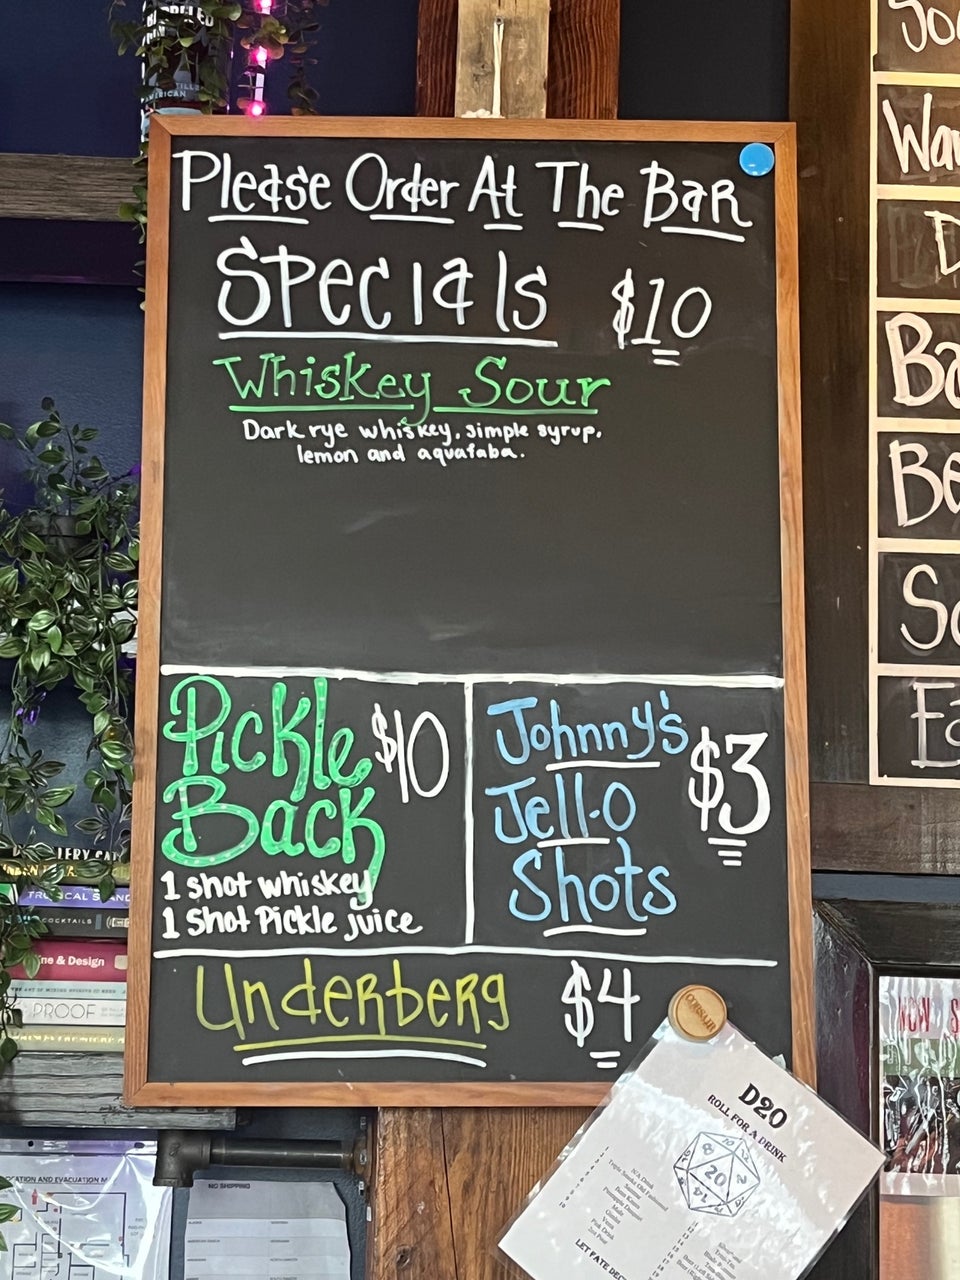 Please Order At The Bar
Specials $10
Whiskey Sour
Dark rye whiskey, simple syrup,
lemon and aquafaba.
Pickle
Back
$10
1 shot whiskey
1 shot Pickle juice
Johnny's
Jell-O
Shots
$3
Underberg $4
CORSAIR
D20
ROLL FOR A DRINK
20
8
14
10
12
2
LET FATE
AMERICAN
COCKTAILS
ne & Design
PROOF
AND EVACUATION
NO SHIPPING
NOW
Ba
Be
So